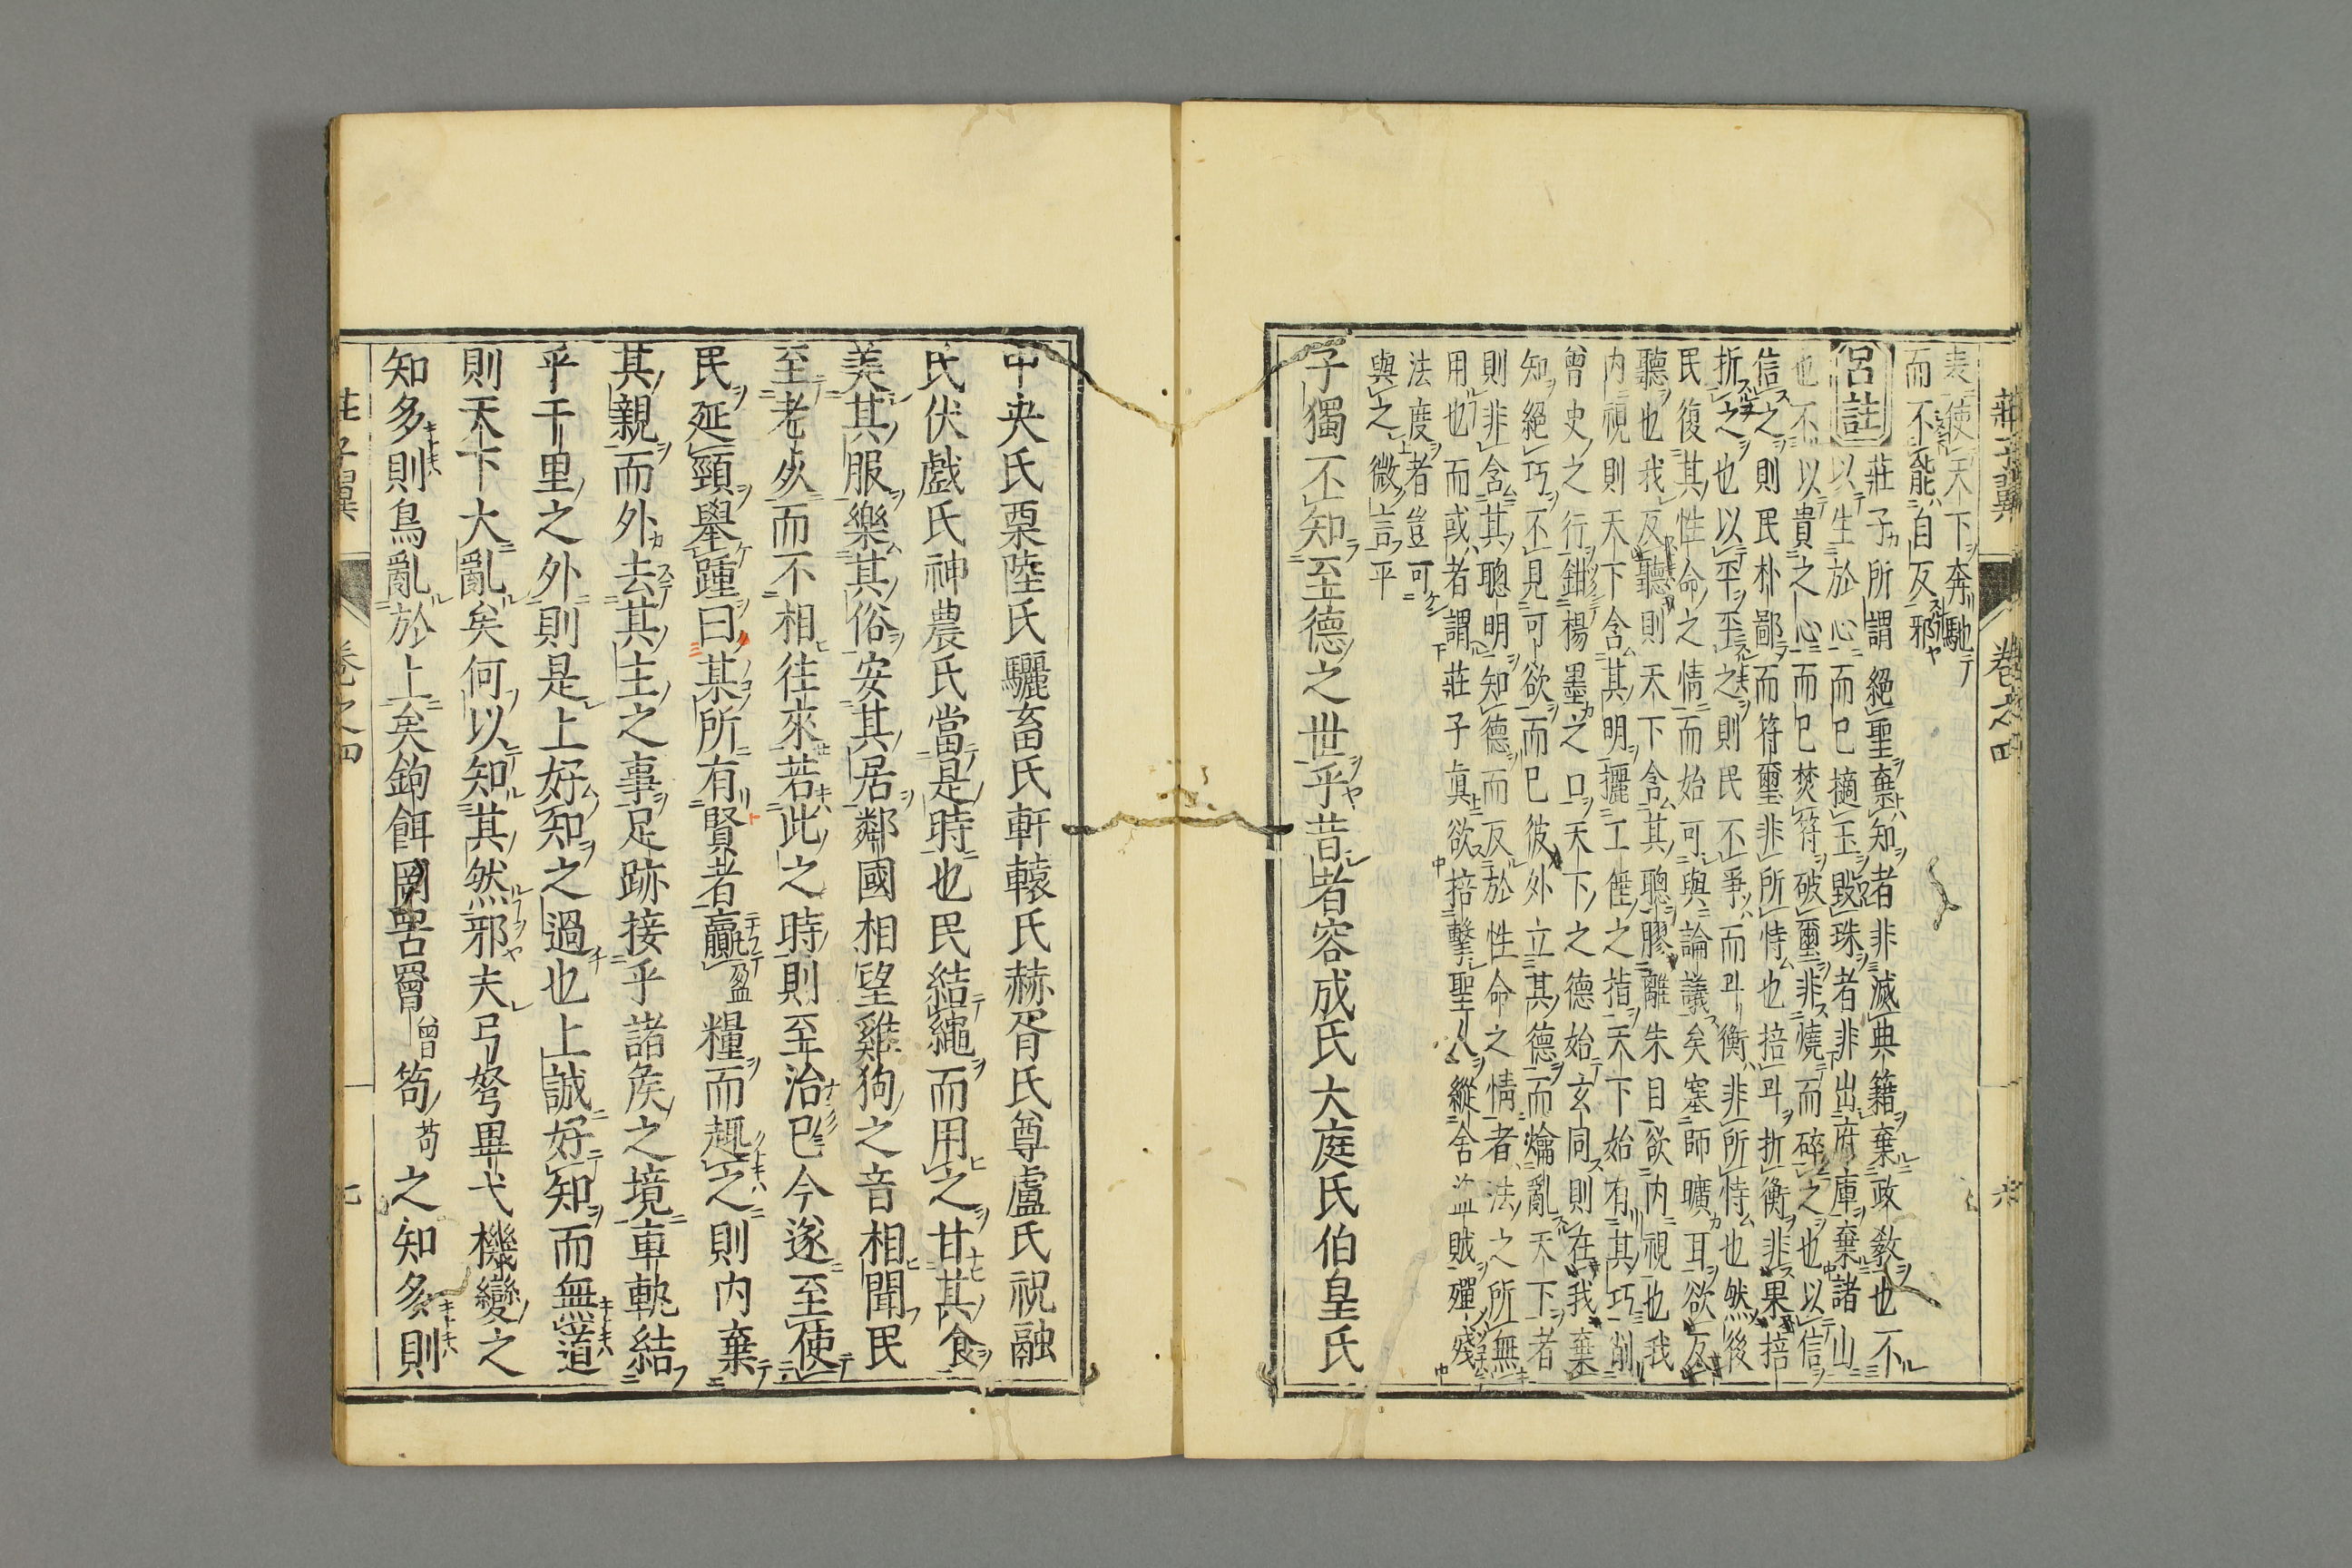 莊子翼 卷之四 六
表使天下奔馳
而不能自反邪
呂註 莊子所謂絕聖棄知者非滅典籍棄政教也不
以生於心而已擿玉毀珠者非出府庫棄諸山
也不以貴之心而已焚符破璽非燒而碎之也以信
信之則民朴鄙而符璽非所恃也掊斗折衡非果掊
折之也以平至之則民不爭而斗衡非所恃也然後
民復其性命之情而始可與論議矣塞師曠耳欲反
聽也我反聽則天下含其聰膠離朱目欲內視也我
內視則天下含其明攦工倕之指天下始有其巧削
曾史之行鉗楊墨之口天下之德始玄同則在我棄
知絕巧不見可欲而已彼外立其德而爚亂天下者
則非含其聰明知德而反於性命之情者法之所無
用也而或者謂莊子眞欲掊擊聖人縱舍盜賊殫殘
法度者豈可
與之微言乎
子獨不知至德之世乎昔者容成氏大庭氏伯皇氏
中央氏栗陸氏驪畜氏軒轅氏赫胥氏尊盧氏祝融
氏伏戲氏神農氏當是時也民結繩而用之甘其食
美其服樂其俗安其居鄰國相望雞狗之音相聞民
至老死而不相往來若此之時則至治已今遂至使
民延頸舉踵曰某所有賢者贏盈糧而趣之則內棄
其親而外去其主之事足跡接乎諸侯之境車軌結
乎千里之外則是上好知之過也上誠好知而無道
則天下大亂矣何以知其然邪夫弓弩畢弋機變之
知多則鳥亂於上矣鉤餌罔罟罾曾笱苟之知多則
莊子翼 卷之四 七